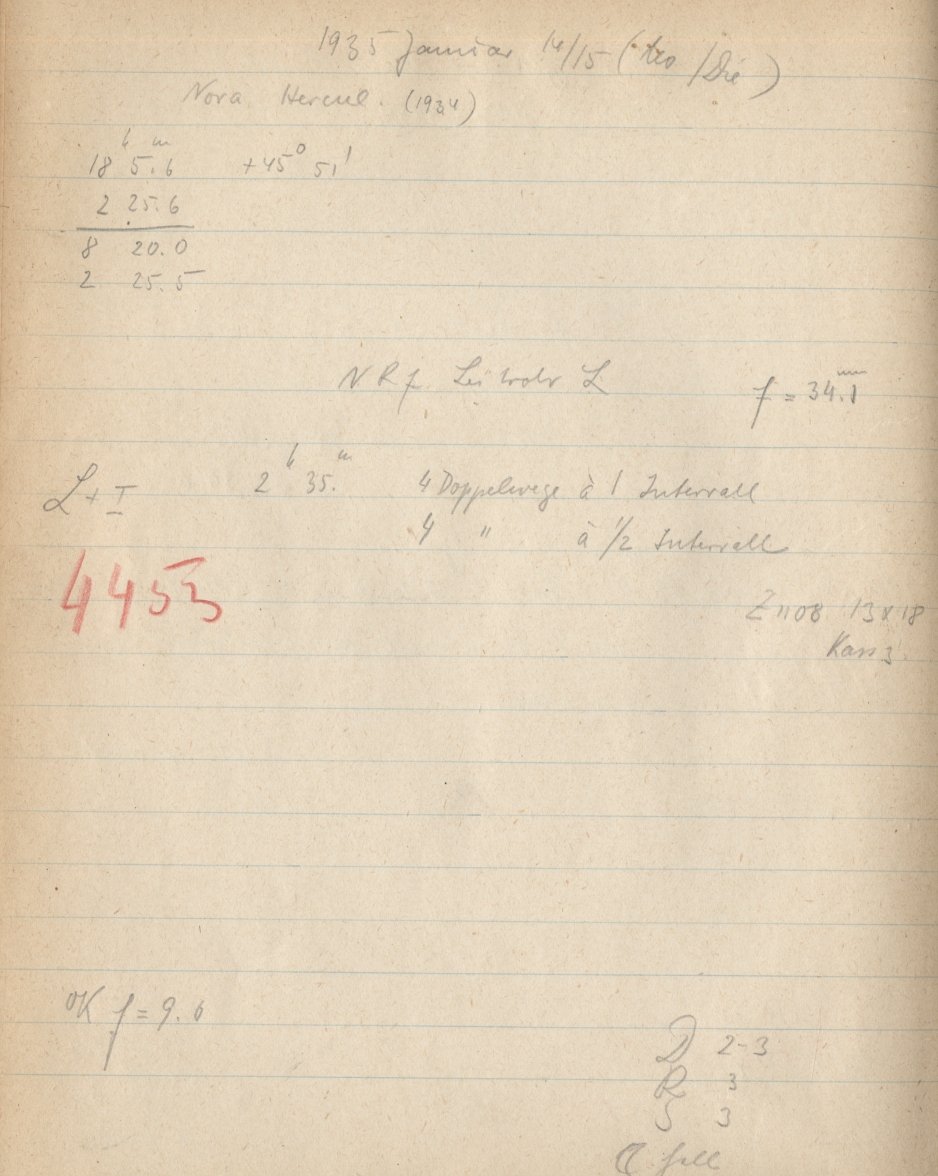 1935 Januar 14/15 (Mo/Die)
Nova Hercul. (1934)
18h 5.m6 +45° 51'
2 25.6
8 20.0
2 25.5
N R f Leitrohr L
f = 34.1mm
L + I 2h 35.m 4 Doppelwege à 1 Intervall
4 " à 1/2 Intervall
4453
Z 1108 13x18
Kass 3.
OK f = 9.6
D 2-3
R 3
S 3
☾ hell